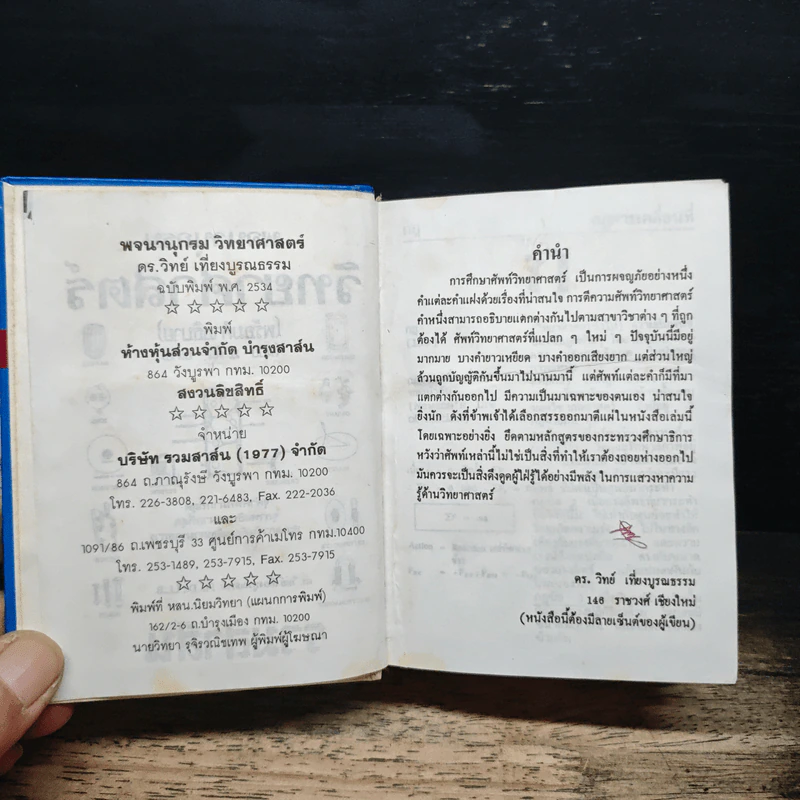 พจนานุกรม วิทยาศาสตร์
ดร.วิทย์ เที่ยงบูรณธรรม
ฉบับพิมพ์ พ.ศ. 2534
☆ ☆ ☆ ☆ ☆
พิมพ์
ห้างหุ้นส่วนจำกัด บำรุงสาส์น
864 วังบูรพา กทม. 10200
สงวนลิขสิทธิ์
☆ ☆ ☆ ☆ ☆
จำหน่าย
บริษัท รวมสาส์น (1977) จำกัด
864 ถ.ภาณุรังษี วังบูรพา กทม. 10200
โทร. 226-3808, 221-6483, Fax. 222-2036
และ
1091/86 ถ.เพชรบุรี 33 ศูนย์การค้าเมโทร กทม.10400
โทร. 253-1489, 253-7915, Fax. 253-7915
☆ ☆ ☆ ☆ ☆
พิมพ์ที่ หสน.นิยมวิทยา (แผนกการพิมพ์)
162/2-6 ถ.บำรุงเมือง กทม. 10100
นายวิทยา รุจิรวณิชเทพ ผู้พิมพ์ผู้โฆษณา
คำนำ
การศึกษาศัพท์วิทยาศาสตร์ เป็นการผจญภัยอย่างหนึ่ง
คำแต่ละคำแฝงด้วยเรื่องที่น่าสนใจ การตีความศัพท์วิทยาศาสตร์
คำหนึ่งสามารถอธิบายแตกต่างกันไปตามสาขาวิชาต่าง ๆ ที่ถูก
ต้องได้ ศัพท์วิทยาศาสตร์ที่แปลก ๆ ใหม่ ๆ ปัจจุบันนี้มีอยู่
มากมาย บางคำยาวเหยียด บางคำออกเสียงยาก แต่ส่วนใหญ่
ล้วนถูกบัญญัติกันขึ้นมาไม่นานมานี้ แต่ศัพท์แต่ละคำก็มีที่มา
แตกต่างกันออกไป มีความเป็นมาเฉพาะของตนเอง น่าสนใจ
ยิ่งนัก ดังที่ข้าพเจ้าได้เลือกสรรออกมาตีแผ่ในหนังสือเล่มนี้
โดยเฉพาะอย่างยิ่ง ยึดตามหลักสูตรของกระทรวงศึกษาธิการ
หวังว่าศัพท์เหล่านี้ไม่ใช่เป็นสิ่งที่ทำให้เราต้องถอยห่างออกไป
มันควรจะเป็นสิ่งดึงดูดผู้ใฝ่รู้ได้อย่างมีพลัง ในการแสวงหาความ
รู้ด้านวิทยาศาสตร์
ดร. วิทย์ เที่ยงบูรณธรรม
146 ราชวงศ์ เชียงใหม่
(หนังสือนี้ต้องมีลายเซ็นต์ของผู้เขียน)